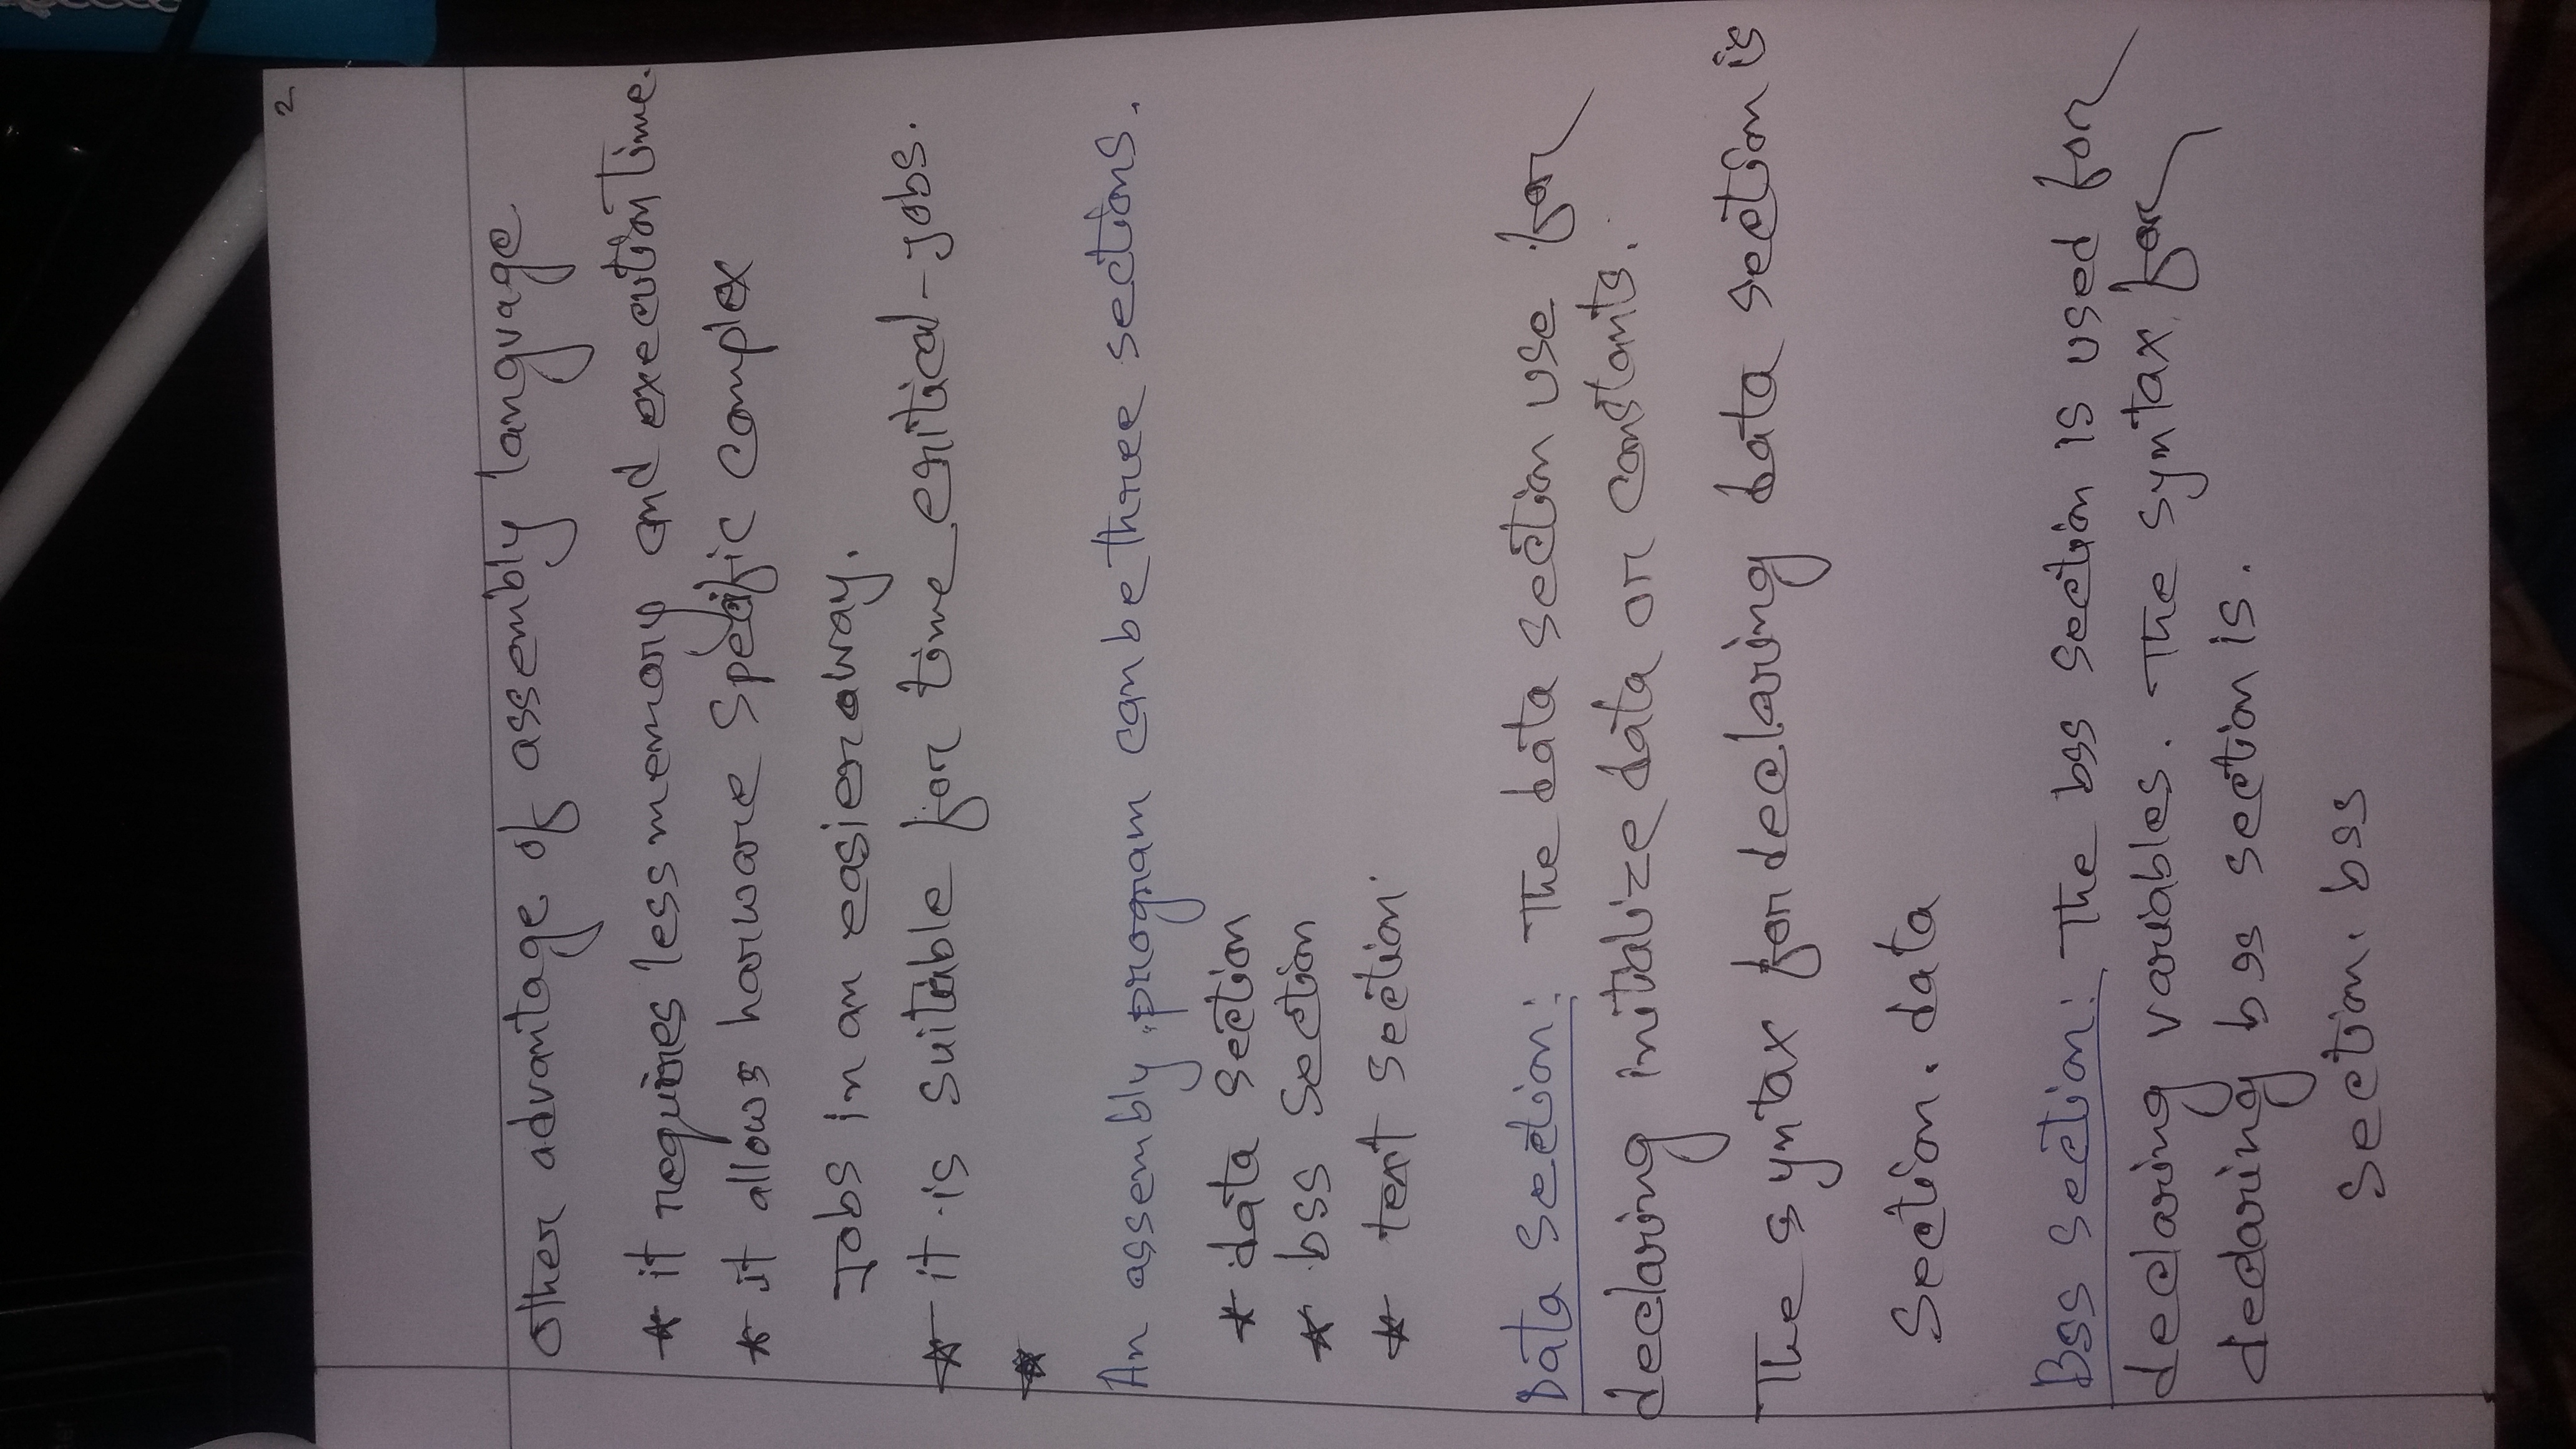 2
other advantage of assembly language
* it requires less memory and execution time.
* it allows harware specific complex
Jobs in an easier away.
* it is suitable for time critical-jobs.
*
An assembly program can be three sections.
* data section
* bss section
* text section.
Data section: The data section use for
declaring initialize data or constants.
The syntax for declaring data section is
Section. data
Bss section: The bss section is used for
declaring variables. The syntax for
declaring bss section is.
section. bss